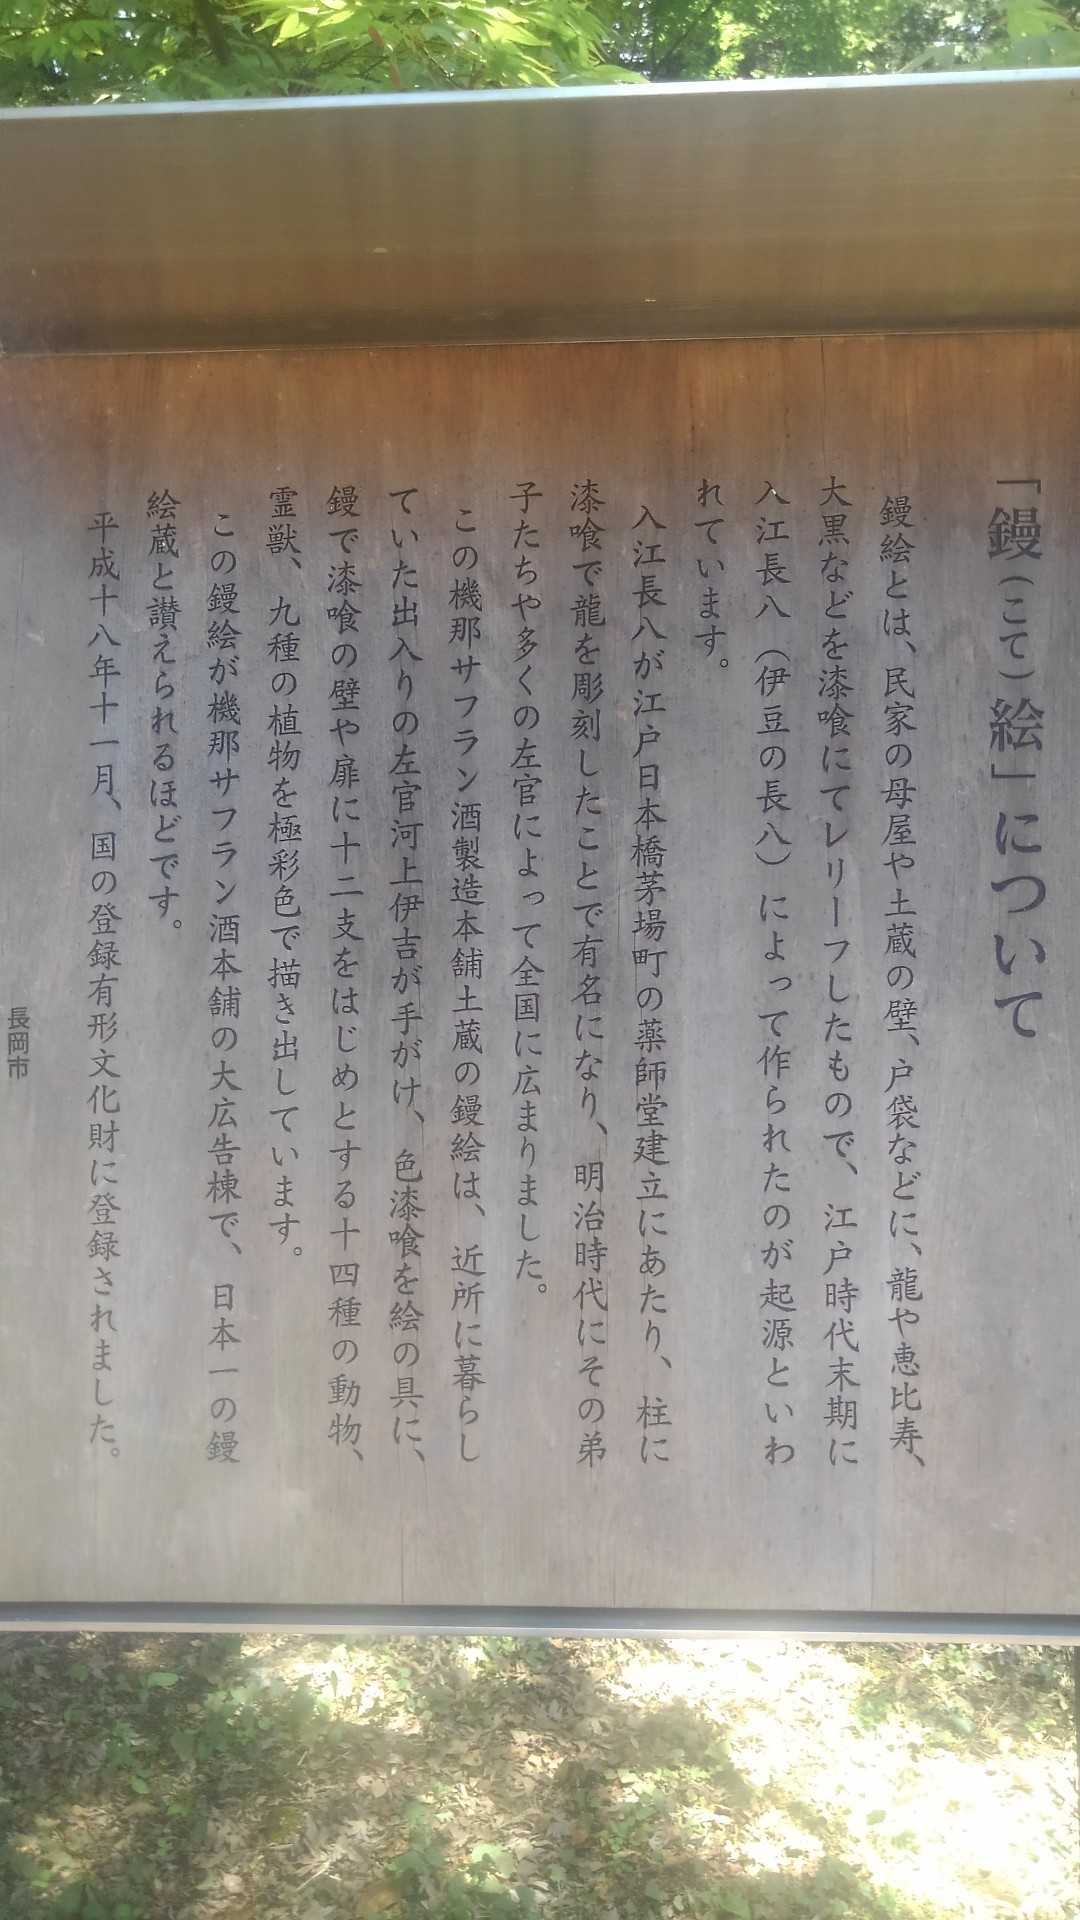 「鏝(こて)絵」について
鏝絵とは、民家の母屋や土蔵の壁、戸袋などに、龍や恵比寿、
大黒などを漆喰にてレリーフしたもので、江戸時代末期に
入江長八（伊豆の長八）によって作られたのが起源といわ
れています。
入江長八が江戸日本橋茅場町の薬師堂建立にあたり、柱に
漆喰で龍を彫刻したことで有名になり、明治時代にその弟
子たちや多くの左官によって全国に広まりました。
この機那サフラン酒製造本舗土蔵の鏝絵は、近所に暮らし
ていた出入りの左官河上伊吉が手がけ、色漆喰を絵の具に、
鏝で漆喰の壁や扉に十二支をはじめとする十四種の動物、
霊獣、九種の植物を極彩色で描き出しています。
この鏝絵が機那サフラン酒本舗の大広告棟で、日本一の鏝
絵蔵と讃えられるほどです。
平成十八年十一月、国の登録有形文化財に登録されました。
長岡市